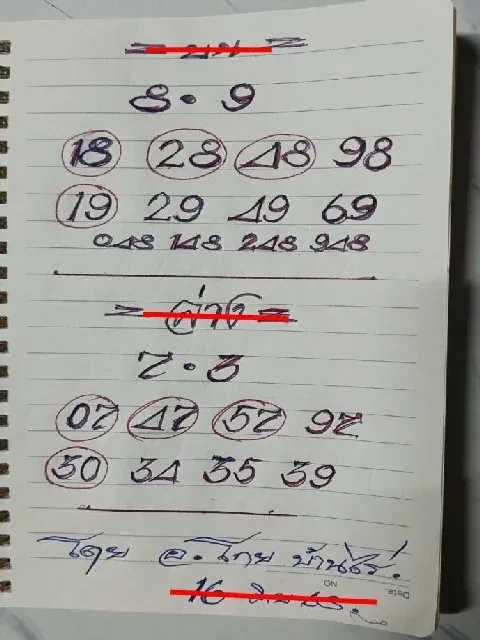 = บน =
8 • 9
18 28 48 98
19 29 49 69
048 148 248 948
= ล่าง =
7 • 3
07 47 57 97
30 34 35 39
โดย อ.โทย บ้านไร่.
NO
Date
16